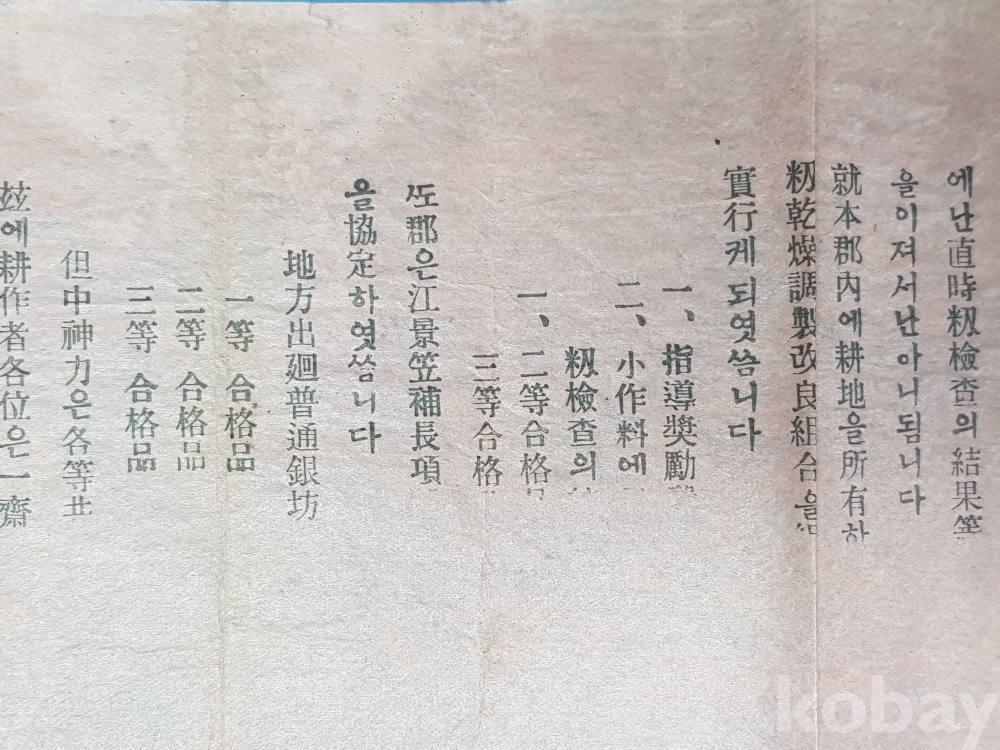 에난直時籾檢査의結果等
을이저서난아니됨니다
就本郡內에耕地을所有하
籾乾燥調製改良組合을
實行케되엿씀니다
一、指導奬勵
二、小作料에
籾檢査의
一、二等合格
三等合格
ᄯᅩ郡은江景笠補長項
을協定하엿씀니다
地方出廻普通銀坊
一等 合格品
二等 合格品
三等 合格品
但中神力은各等共
玆에耕作者各位은一齊
kobay